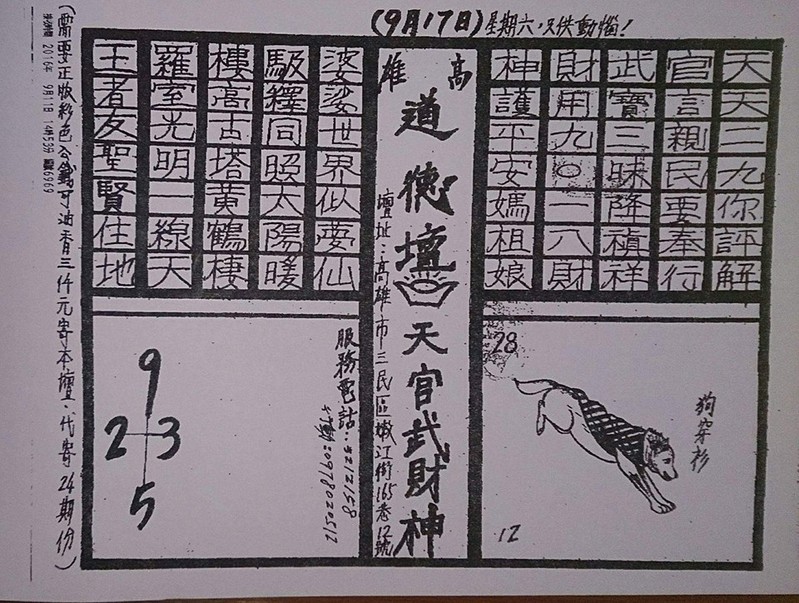 (9月17日)星期六,只供動惱!
天天二九你評解
官言親民要奉行
武寶三昧降禎祥
財用九○一八財
神護平安媽祖娘
28
狗穿衫
12
高雄
道德壇
天官武財神
壇址:高雄市三民區嫩江街165巷12號
婆娑世界似夢仙
馭釋同照太陽暖
樓高古塔黃鶴棲
羅室光明一線天
王者友聖賢住地
服務電話:
行動:0978020512
9
2 3
5
(需要正版彩色公籤可油香三仟元寄本壇.代寄24期份)
2016年 9月11日 14時53分